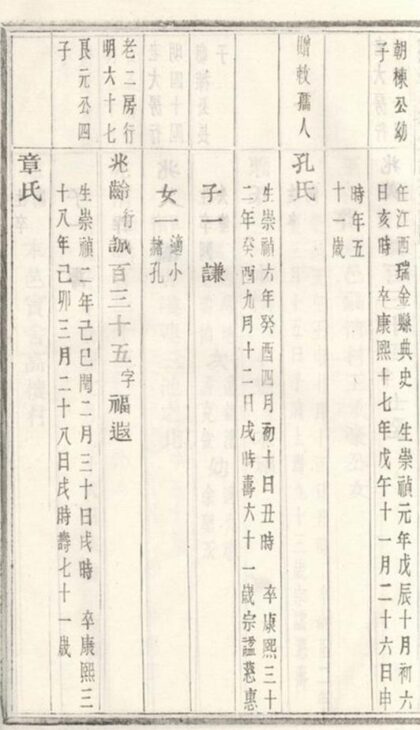 朝棟公幼
子
任江西瑞金縣典史 生崇禎元年戊辰十月初六
日亥時 卒康熙十七年戊午十一月二十六日申
時年五
十一歲
贈敕孺人
孔氏
生崇禎六年癸酉四月初十日丑時 卒康熙三十
二年癸酉九月十二日戌時壽六十一歲宗諡慈惠
子一 謙
女一 適小
赭孔
老二房行
明六十七
兆齡 行誠百三十五 字福遐
良元公四
子
生崇禎二年己巳閏二月三十日戌時 卒康熙三
十八年己卯三月二十八日戌時壽七十一歲
章氏